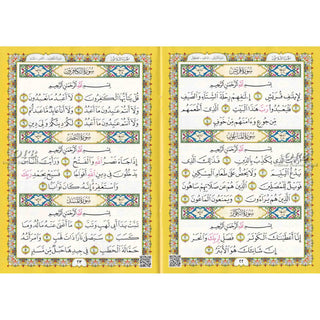 سُورَةُ قُرَيْشٍ
بِسْمِ اللَّهِ الرَّحْمَٰنِ الرَّحِيمِ
لِإِيلَٰفِ قُرَيْشٍ ١ إِۦلَٰفِهِمْ رِحْلَةَ الشِّتَآءِ وَالصَّيْفِ ٢
فَلْيَعْبُدُوا۟ رَبَّ هَٰذَا الْبَيْتِ ٣ الَّذِىٓ أَطْعَمَهُم
مِّن جُوعٍ وَءَامَنَهُم مِّنْ خَوْفٍ ٤
سُورَةُ الْمَاعُونِ
بِسْمِ اللَّهِ الرَّحْمَٰنِ الرَّحِيمِ
أَرَءَيْتَ الَّذِى يُكَذِّبُ بِالدِّينِ ١ فَذَٰلِكَ الَّذِى
يَدُعُّ الْيَتِيمَ ٢ وَلَا يَحُضُّ عَلَىٰ طَعَامِ الْمِسْكِينِ ٣
فَوَيْلٌ لِّلْمُصَلِّينَ ٤ الَّذِينَ هُمْ عَن صَلَاتِهِمْ سَاهُونَ ٥
الَّذِينَ هُمْ يُرَآءُونَ ٦ وَيَمْنَعُونَ الْمَاعُونَ ٧
سُورَةُ الْكَوْثَرِ
بِسْمِ اللَّهِ الرَّحْمَٰنِ الرَّحِيمِ
إِنَّآ أَعْطَيْنَٰكَ الْكَوْثَرَ ١ فَصَلِّ لِرَبِّكَ وَانْحَرْ ٢
إِنَّ شَانِئَكَ هُوَ الْأَبْتَرُ ٣
٢٢
سُورَةُ الْكَافِرُونَ
بِسْمِ اللَّهِ الرَّحْمَٰنِ الرَّحِيمِ
قُلْ يَٰٓأَيُّهَا الْكَٰفِرُونَ ١ لَآ أَعْبُدُ مَا تَعْبُدُونَ ٢
وَلَآ أَنتُمْ عَٰبِدُونَ مَآ أَعْبُدُ ٣ وَلَآ أَنَا۠ عَابِدٌ مَّا عَبَدتُّمْ ٤
وَلَآ أَنتُمْ عَٰبِدُونَ مَآ أَعْبُدُ ٥ لَكُمْ دِينُكُمْ وَلِىَ دِينِ ٦
سُورَةُ النَّصْرِ
بِسْمِ اللَّهِ الرَّحْمَٰنِ الرَّحِيمِ
إِذَا جَآءَ نَصْرُ اللَّهِ وَالْفَتْحُ ١ وَرَأَيْتَ النَّاسَ
يَدْخُلُونَ فِى دِينِ اللَّهِ أَفْوَاجًا ٢ فَسَبِّحْ بِحَمْدِ رَبِّكَ
وَاسْتَغْفِرْهُ إِنَّهُۥ كَانَ تَوَّابًۢا ٣
سُورَةُ الْمَسَدِ
بِسْمِ اللَّهِ الرَّحْمَٰنِ الرَّحِيمِ
تَبَّتْ يَدَآ أَبِى لَهَبٍ وَتَبَّ ١ مَآ أَغْنَىٰ عَنْهُ مَالُهُۥ وَمَا
كَسَبَ ٢ سَيَصْلَىٰ نَارًا ذَاتَ لَهَبٍ ٣ وَامْرَأَتُهُۥ
حَمَّالَةَ الْحَطَبِ ٤ فِى جِيدِهَا حَبْلٌ مِّن مَّسَدٍۭ ٥
٢٣